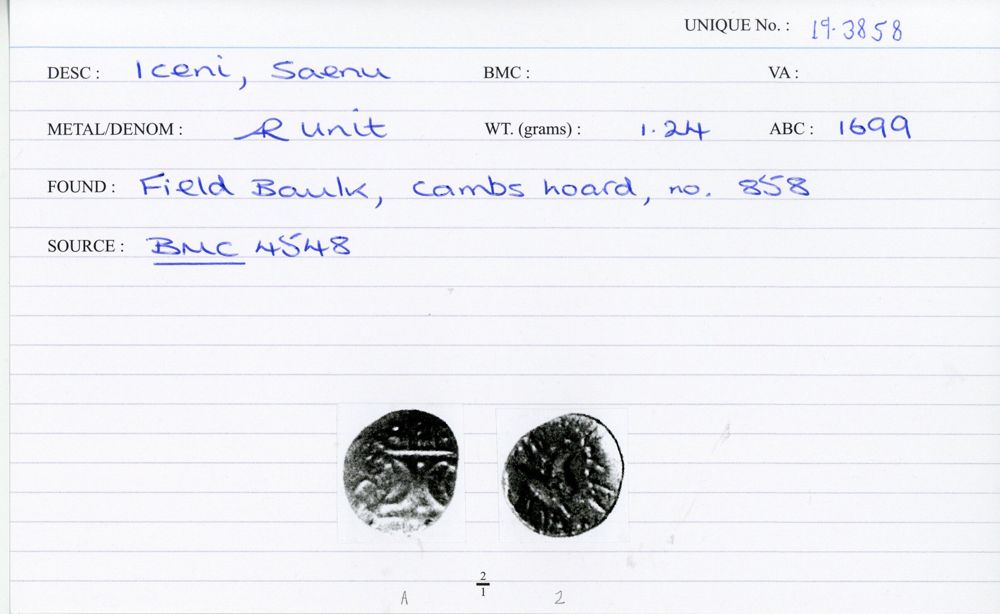 UNIQUE No. : 19.3858
DESC : Iceni, Saenu BMC : VA :
METAL/DENOM : AR unit WT. (grams) : 1.24 ABC : 1699
FOUND : Field Baulk, Cambs hoard, no. 858
SOURCE : BMC 4548
2
1
A 2